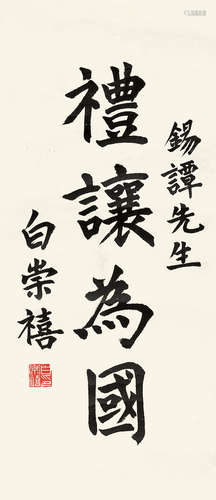 錫譚先生
禮讓為國
白崇禧